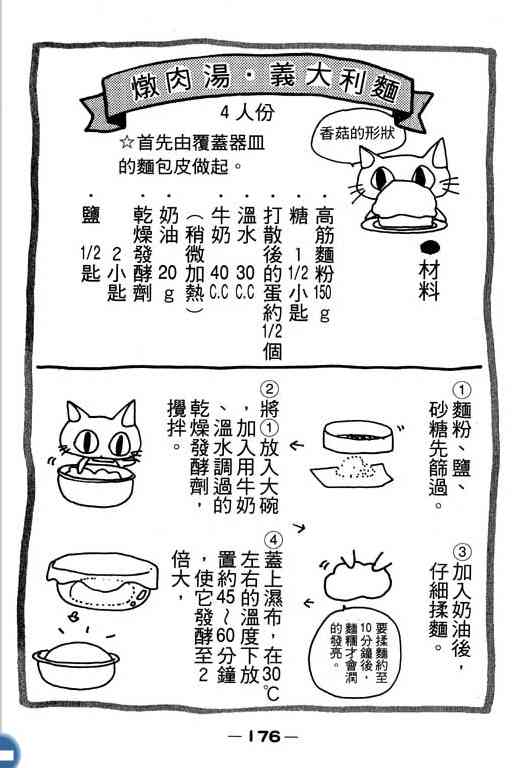 燉肉湯・義大利麵
4人份
☆首先由覆蓋器皿
的麵包皮做起。
香菇的形狀
●材料
・高筋麵粉150g
・糖 1 1/2小匙
・打散後的蛋約1/2個
・溫水 30C.C
・牛奶 40C.C
(稍微加熱)
・奶油 20g
・乾燥發酵劑
2小匙
・鹽 1/2匙
①麵粉、鹽、
砂糖先篩過。
②將①放入大碗
，加入用牛奶
、溫水調過的
乾燥發酵劑，
攪拌。
③加入奶油後，
仔細揉麵。
要揉麵約至
10分鐘後，
麵糰才會潤
的發亮。
④蓋上濕布，在30℃
左右的溫度下放
置約45～60分鐘
，使它發酵至2
倍大，
—176—